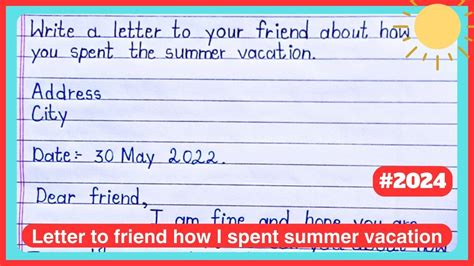 Write a letter to your friend about how
you spent the summer vacation.
Address
City
Date:- 30 May 2022.
#2024
Dear friend,
I am fine and hope you are
Letter to friend how I spent summer vacation
you about how